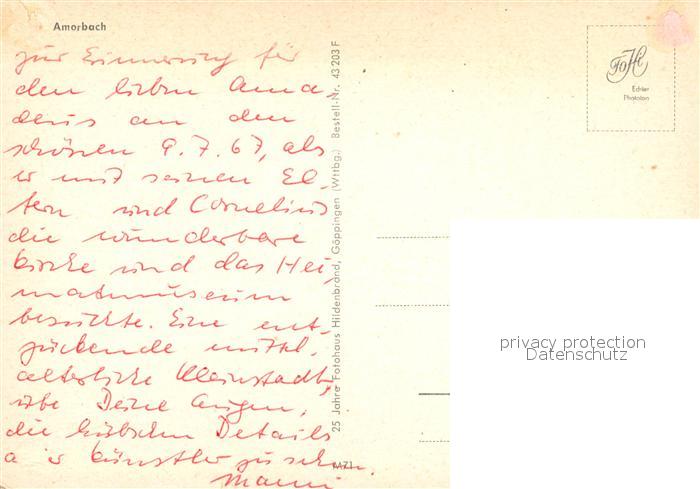 Amorbach
zur Erinnerung für
den lieben Ama-
deus an den
schönen 9.7.67, als
er mit seinen El-
tern und Cornelius
die wunderbare
Kirche und das Hei-
matmuseum
besuchte. Eine ent-
zückende mittel-
alterliche Kleinstadt,
übe Deine Augen,
die hübschen Details
Künstler zu sehen.
25 Jahre Fotohaus Hildenbrand, Göppingen (Wttbg.) Bestell-Nr. 43 203 F
FoHi
Echter
Phototon
privacy protection
Datenschutz